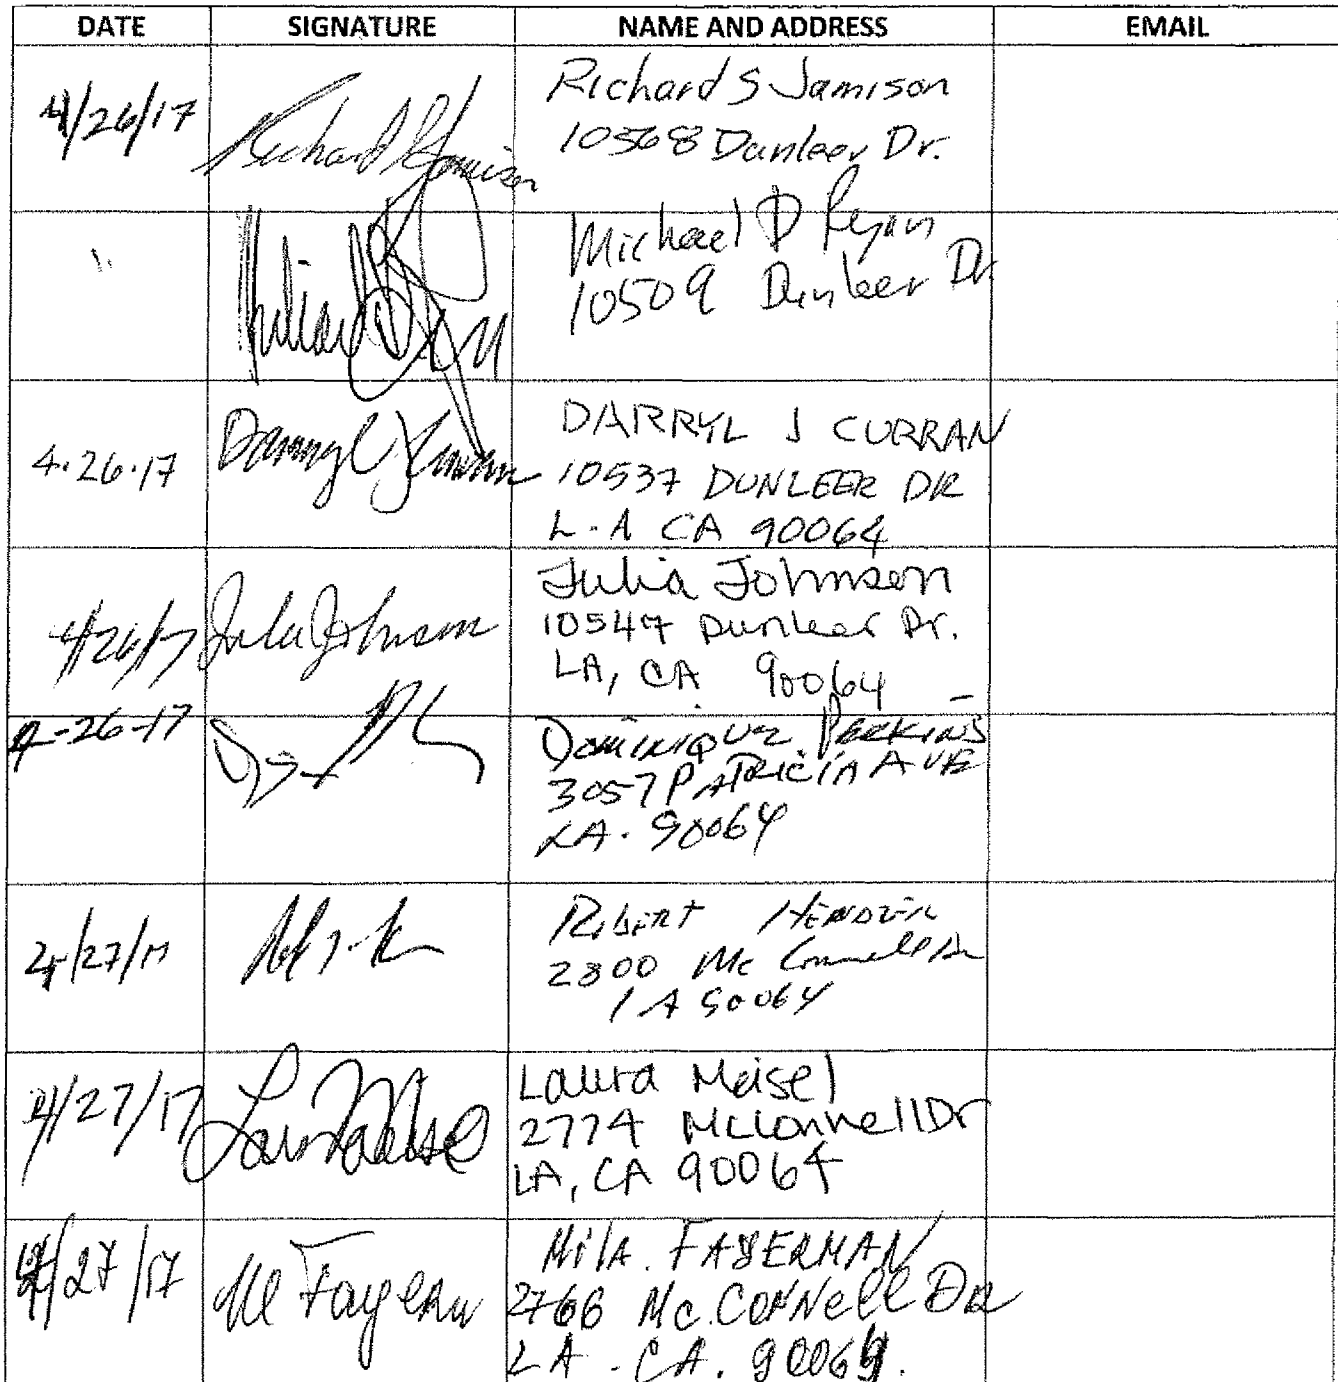 DATE SIGNATURE NAME AND ADDRESS EMAIL
4/26/17 Richard S Jamison Richard S Jamison
10568 Dunleer Dr.
" Michael D Ryan
10509 Dunleer Dr.
4.26.17 Darryl J Curran DARRYL J CURRAN
10537 DUNLEER DR
L.A CA 90064
4/26/17 Julia Johnson Julia Johnson
10547 Dunleer Dr.
LA, CA 90064
4-26-17 Dominique Perkins
3057 PATRICIA AVE
LA. 90064
4/27/17 Robert
2800 Mc Connell Dr
LA 90064
4/27/17 Laura Meisel Laura Meisel
2774 McConnell Dr
LA, CA 90064
4/27/17 Mila. FAYERMAN
2766 Mc.CONNell DR
LA - CA. 90064.